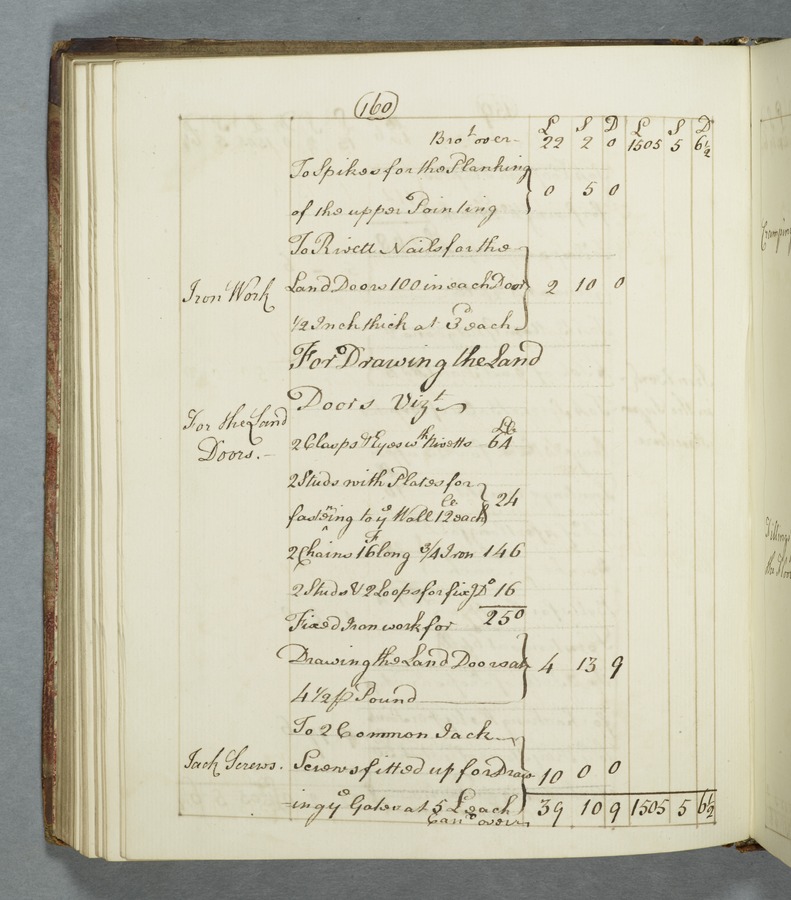 160
L S D L S D
Bro.t over - 22 2 0 1505 5 6½
To Spikes for the Planking
of the upper Pointing } 0 5 0
To Rivett Nails for the
Iron Work Land Doors 100 in each Door } 2 10 0
½ Inch thick at 3d each
For Drawing the Land
For the Land Doors Vizt
Doors.- 2 Clasps & Eyes wth Rivetts 64 lb
2 Studs with Plates for
fastening to ye Wall 12 lb each } 24
2 Chains 16 F long ¾ Iron 146
2 Studs & 2 Loops for fixg Do 16
Fixed Iron work for 250
Drawing the Land Doors at } 4 13 9
4½ p Pound
To 2 Common Jack
Jack Screws. Screws fitted up for Draw 10 0 0
-ing ye Gates at 5 L each } 39 10 9 1505 5 6½
Carrd over
Cramping